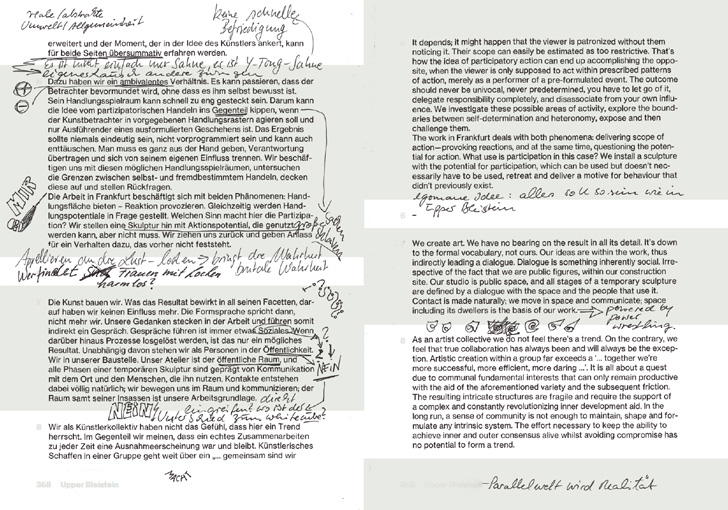 reale/abstrakte
Umwelt/Allgemeinheit
keine schnelle
Befriedigung
erweitert und der Moment, der in der Idee des Künstlers ankert, kann
für beide Seiten übersummativ erfahren werden.
Es ist nicht einfach nur Sahne, es ist Y-Tong-Sahne
Dazu haben wir ein ambivalentes Verhältnis. Es kann passieren, dass der
Betrachter bevormundet wird, ohne dass es ihm selbst bewusst ist.
Sein Handlungsspielraum kann schnell zu eng gesteckt sein. Darum kann
die Idee vom partizipatorischen Handeln ins Gegenteil kippen, wenn
der Kunstbetrachter in vorgegebenen Handlungsrastern agieren soll und
nur Ausführender eines ausformulierten Geschehens ist. Das Ergebnis
sollte niemals eindeutig sein, nicht vorprogrammiert sein und kann auch
enttäuschen. Man muss es ganz aus der Hand geben, Verantwortung
übertragen und sich von seinem eigenen Einfluss trennen. Wir beschäf-
tigen uns mit diesen möglichen Handlungsspielräumen, untersuchen
die Grenzen zwischen selbst- und fremdbestimmtem Handeln, decken
diese auf und stellen Rückfragen.
Die Arbeit in Frankfurt beschäftigt sich mit beiden Phänomenen: Hand-
lungsfläche bieten – Reaktion provozieren. Gleichzeitig werden Hand-
lungspotentiale in Frage gestellt. Welchen Sinn macht hier die Partizipa-
tion? Wir stellen eine Skulptur hin mit Aktionspotential, die genutzt
werden kann, aber nicht muss. Wir ziehen uns zurück und geben Anlass
für ein Verhalten dazu, das vorher nicht feststeht.
Appellieren an die Lust-locken → bringt die Wahrheit
brutale Wahrheit
Wer findet Frauen mit Locken
harmlos?
Die Kunst bauen wir. Was das Resultat bewirkt in all seinen Facetten, dar-
auf haben wir keinen Einfluss mehr. Die Formsprache spricht dann,
nicht mehr wir. Unsere Gedanken stecken in der Arbeit und führen somit
indirekt ein Gespräch. Gespräche führen ist immer etwas Soziales. Wenn
darüber hinaus Prozesse losgelöst werden, ist das nur ein mögliches
Resultat. Unabhängig davon stehen wir als Personen in der Öffentlichkeit.
Wir in unserer Baustelle. Unser Atelier ist der öffentliche Raum, und
alle Phasen einer temporären Skulptur sind geprägt von Kommunikation
mit dem Ort und den Menschen, die ihn nutzen. Kontakte entstehen
dabei völlig natürlich; wir bewegen uns im Raum und kommunizieren; der
Raum samt seiner Insassen ist unsere Arbeitsgrundlage. direkt
NEIN
NEIN!
eingreifend wo ist der
Unterschied zum
8 Wir als Künstlerkollektiv haben nicht das Gefühl, dass hier ein Trend
herrscht. Im Gegenteil wir meinen, dass ein echtes Zusammenarbeiten
zu jeder Zeit eine Ausnahmeerscheinung war und bleibt. Künstlerisches
Schaffen in einer Gruppe geht weit über ein „... gemeinsam sind wir
MACHT
368 Upper Bleistein
It depends; it might happen that the viewer is patronized without them
noticing it. Their scope can easily be estimated as too restrictive. That's
how the idea of participatory action can end up accomplishing the oppo-
site, when the viewer is only supposed to act within prescribed patterns
of action, merely as a performer of a pre-formulated event. The outcome
should never be univocal, never predetermined, you have to let go of it,
delegate responsibility completely, and disassociate from your own influ-
ence. We investigate these possible areas of activity, explore the bound-
aries between self-determination and heteronomy, expose and then
challenge them.
The work in Frankfurt deals with both phenomena: delivering scope of
action—provoking reactions, and at the same time, questioning the poten-
tial for action. What use is participation in this case? We install a sculpture
with the potential for participation, which can be used but doesn't nec-
essarily have to be used, retreat and deliver a motive for behaviour that
didn't previously exist.
egomane Idee: alles soll so sein wie in
Upper Bleistein
6 –
7 We create art. We have no bearing on the result in all its detail. It's down
to the formal vocabulary, not ours. Our ideas are within the work, thus
indirectly leading a dialogue. Dialogue is something inherently social. Irre-
spective of the fact that we are public figures, within our construction
site. Our studio is public space, and all stages of a temporary sculpture
are defined by a dialogue with the space and the people that use it.
Contact is made naturally; we move in space and communicate; space
including its dwellers is the basis of our work. → powered by
power
wrestling
8 As an artist collective we do not feel there's a trend. On the contrary, we
feel that true collaboration has always been and will always be the excep-
tion. Artistic creation within a group far exceeds a '... together we're
more successful, more efficient, more daring ...'. It is all about a quest
due to communal fundamental interests that can only remain productive
with the aid of the aforementioned variety and the subsequent friction.
The resulting intricate structures are fragile and require the support of
a complex and constantly revolutionizing inner development aid. In the
long run, a sense of community is not enough to maintain, shape and for-
mulate any intrinsic system. The effort necessary to keep the ability to
achieve inner and outer consensus alive whilst avoiding compromise has
no potential to form a trend.
Upper Bleistein
Parallelwelt wird Realität